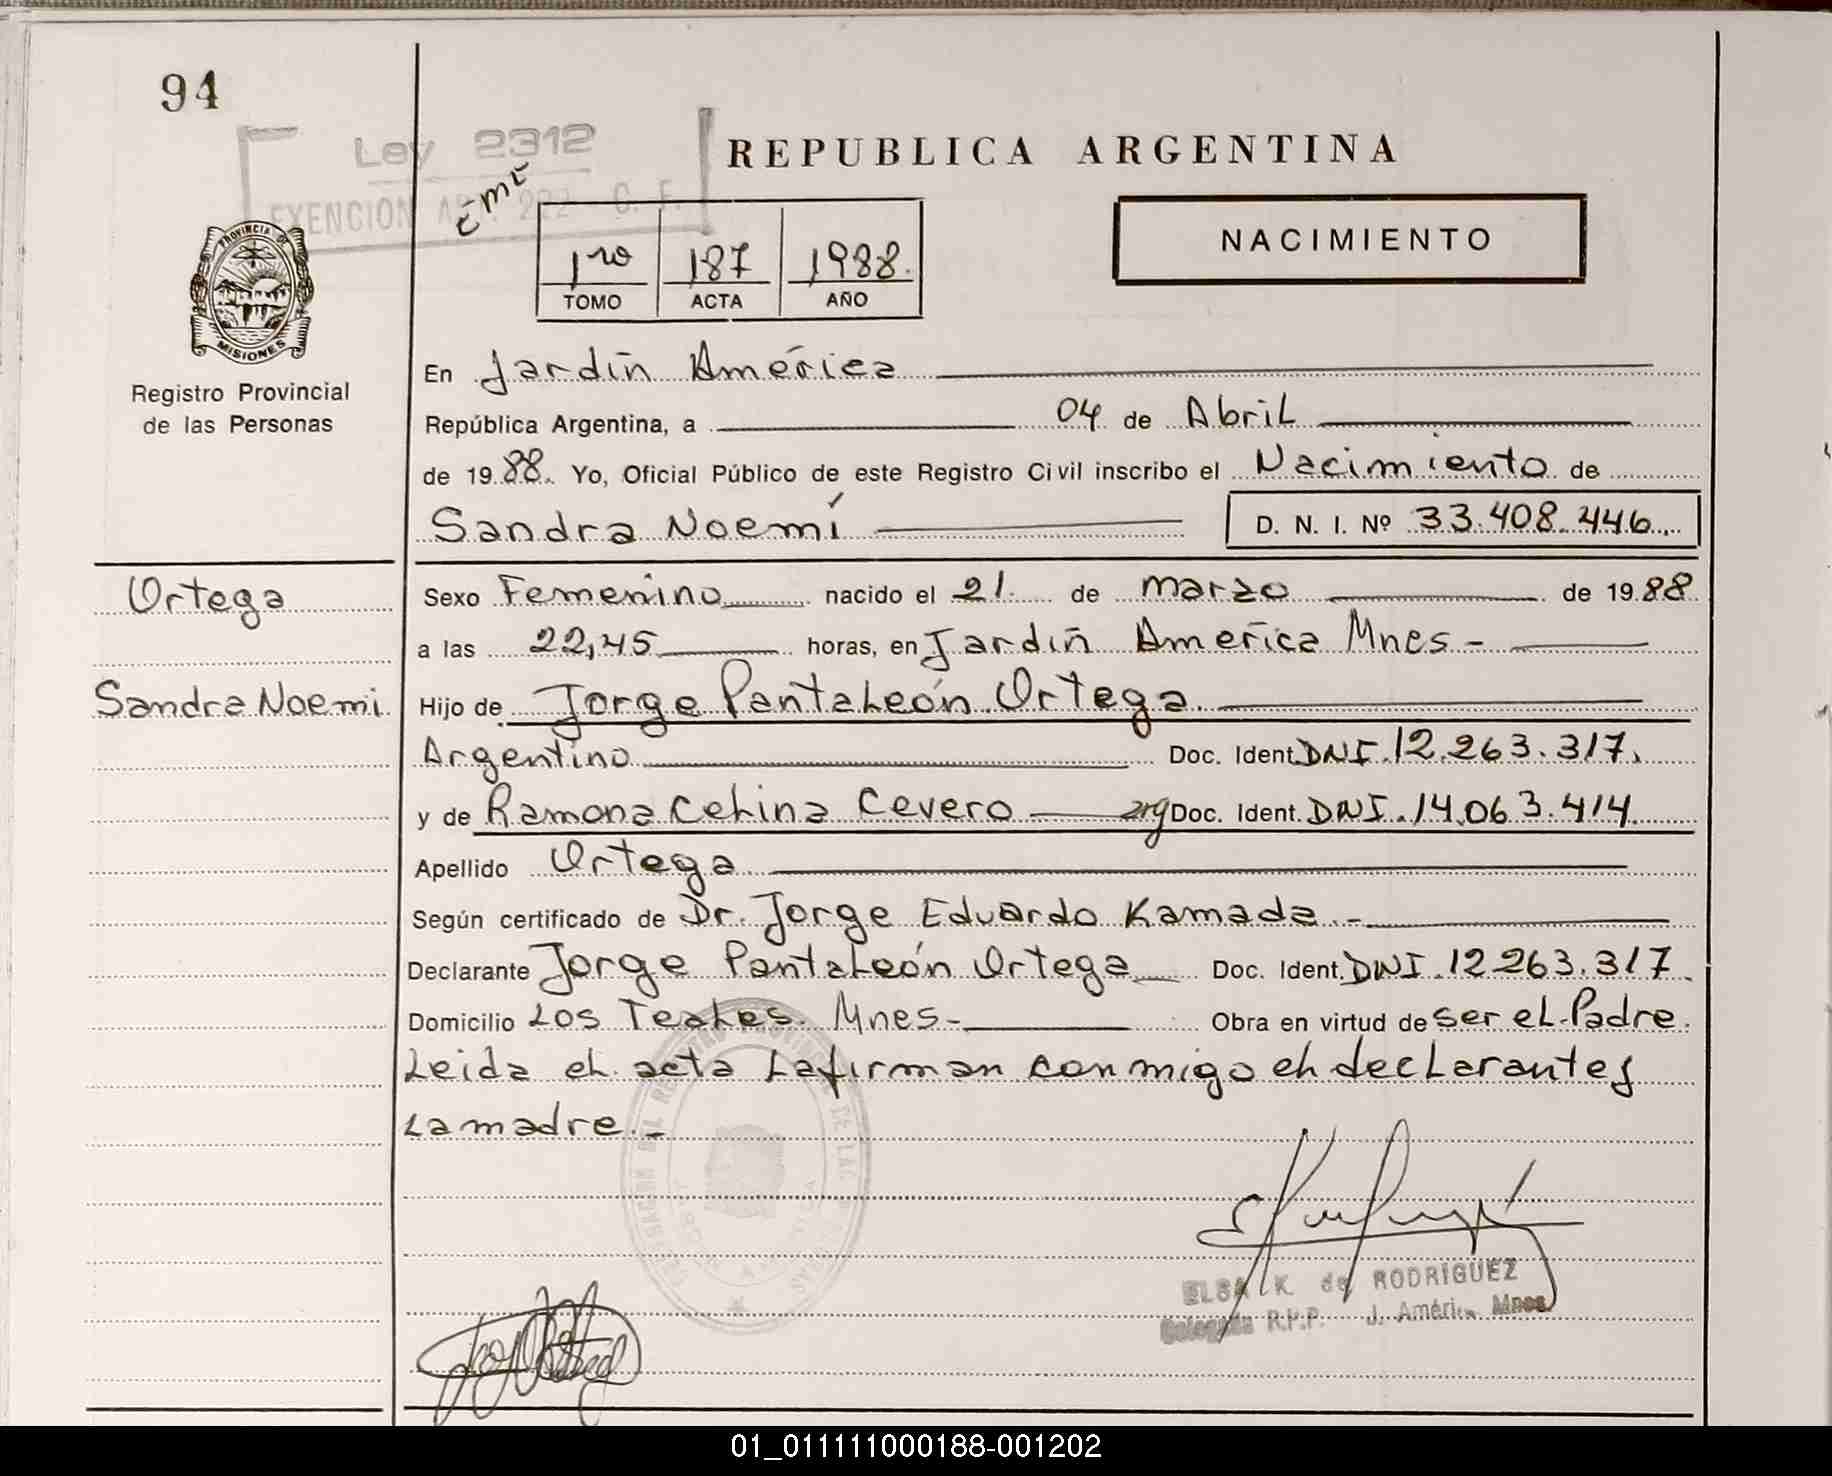 94
Ley 2312
EXENCION
REPUBLICA ARGENTINA
NACIMIENTO
1ro 187 1988.
TOMO ACTA AÑO
PROVINCIA DE
MISIONES
Registro Provincial
de las Personas
En Jardín América
República Argentina, a 04 de Abril
de 19 88. Yo, Oficial Público de este Registro Civil inscribo el Nacimiento de
Sandra Noemí D. N. I. Nº 33.408.446
Ortega
Sandra Noemi
Sexo Femenino nacido el 21 de marzo de 19 88
a las 22,45 horas, en Jardín America Mnes -
Hijo de Jorge Pantaleón Ortega
Argentino Doc. Ident. DNI. 12.263.317.
y de Ramona Celina Cevero arg Doc. Ident. DNI. 14.063.414
Apellido Ortega
Según certificado de Dr. Jorge Eduardo Kamada -
Declarante Jorge Pantaleón Ortega Doc. Ident. DNI. 12.263.317
Domicilio Los Teales. Mnes- Obra en virtud de ser el Padre.
Leida el acta La firman conmigo el declarantes
La madre.-
ELSA K. de RODRIGUEZ
Delegada R.P.P. J. Améri Mnes
01_011111000188-001202